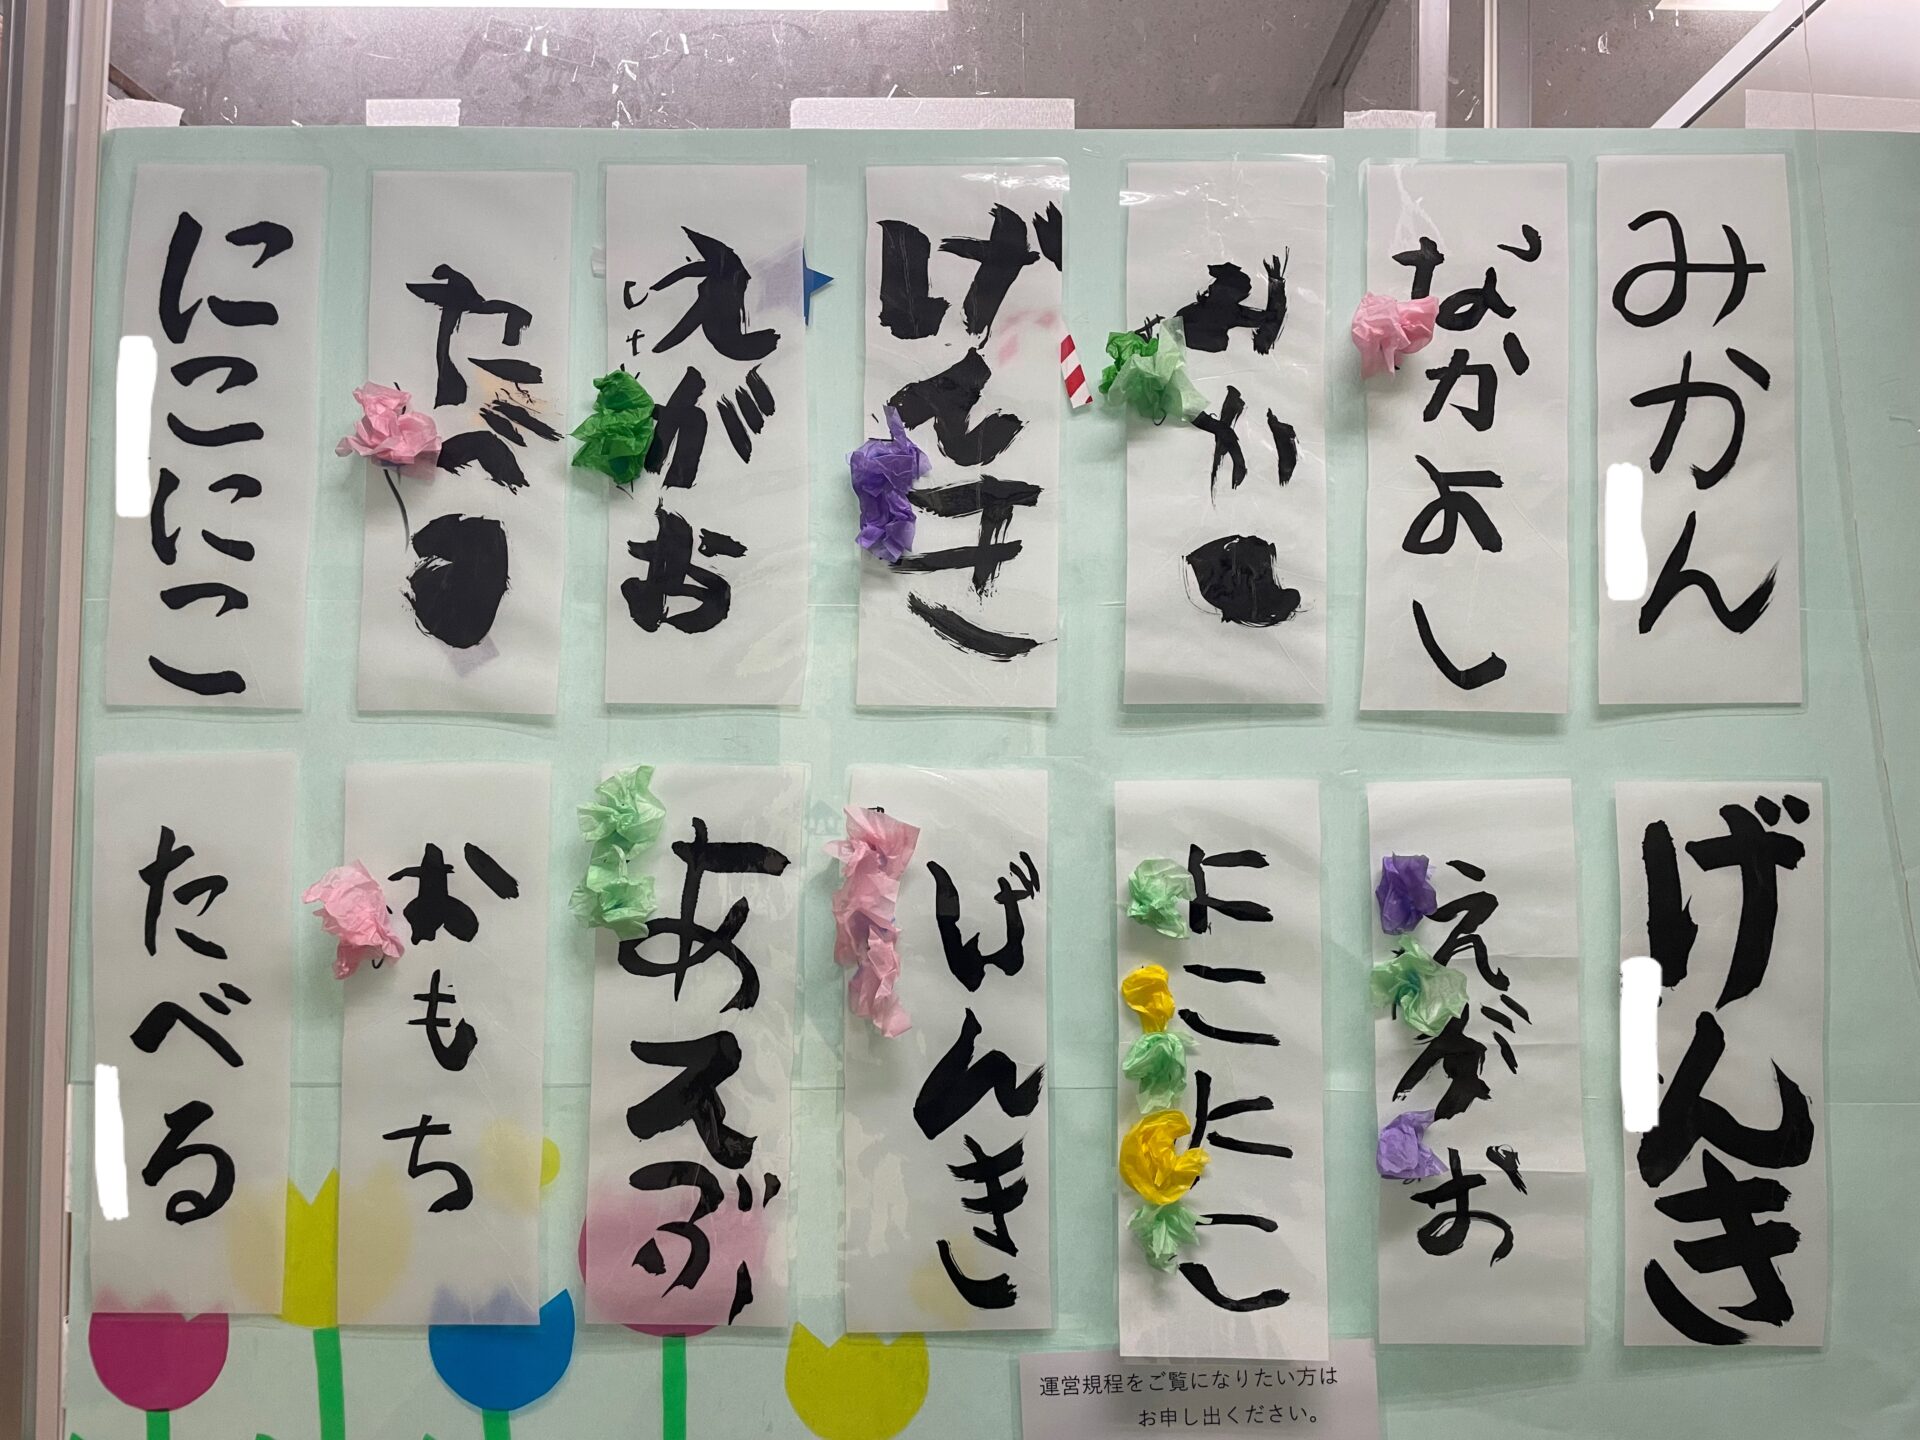 みかん
なかよし
みかん
げんき
えがお
たべる
にこにこ
げんき
えがお
にこにこ
げんき
あそぶ
おもち
たべる
運営規程をご覧になりたい方は
お申し出ください。